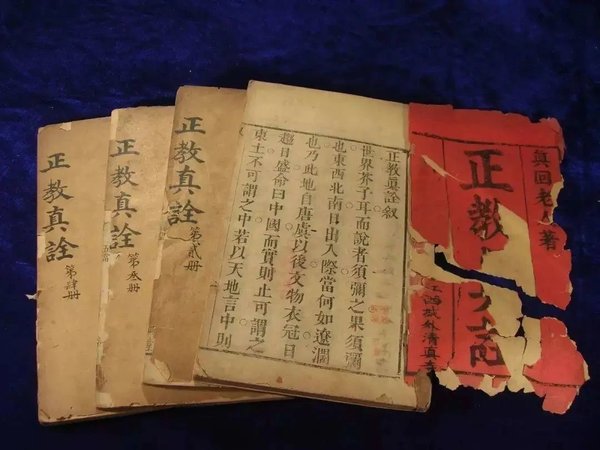 真回老人著
正教
城外清真寺
正教真詮敘
世界芥子耳而說者須彌之果須彌
也東西北南日出入際當何如遼濶
也乃此地自唐虞以後文物衣冠日
趨日盛命曰中國而實則止可謂之
東土不可謂之中若以天地言中則
正教真詮
第貳册
正教真詮
第叁册
正教真詮
第肆册